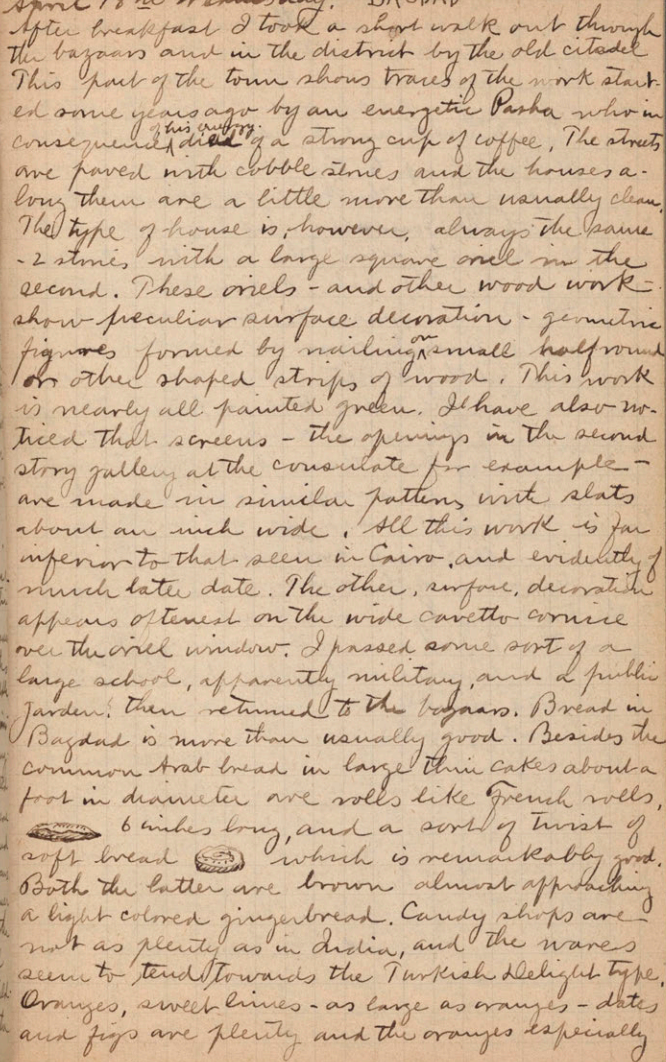 April 18th Wednesday. BAGDAD
After breakfast I took a short walk out through
the bazaars and in the district by the old citadel
This part of the town shows traces of the work start-
ed some years ago by an energetic Pasha who in
of his energy
consequence died of a strong cup of coffee. The streets
are paved with cobble stones and the houses a-
long them are a little more than usually clean.
The type of house is, however, always the same
- 2 stories with a large square oriel in the
second. These oriels - and other wood work -
show peculiar surface decoration - geometric
figures formed by nailing on small halfround
or other shaped strips of wood. This work
is nearly all painted green. I have also no-
ticed that screens - the openings in the second
story gallery at the consulate for example -
are made in similar patterns with slats
about an inch wide. All this work is far
inferior to that seen in Cairo, and evidently of
much later date. The other, surface, decoration
appears oftenest on the wide cavetto cornice
over the oriel window. I passed some sort of a
large school, apparently military, and a public
garden: then returned to the bazaars. Bread in
Bagdad is more than usually good. Besides the
common Arab bread in large thin cakes about a
foot in diameter are rolls like French rolls,
6 inches long, and a sort of twist of
soft bread which is remarkably good.
Both the latter are brown almost approaching
a light colored gingerbread. Candy shops are
not as plenty as in India, and the wares
seem to tend towards the Turkish Delight type.
Oranges, sweet limes - as large as oranges - dates
and figs are plenty and the oranges especially